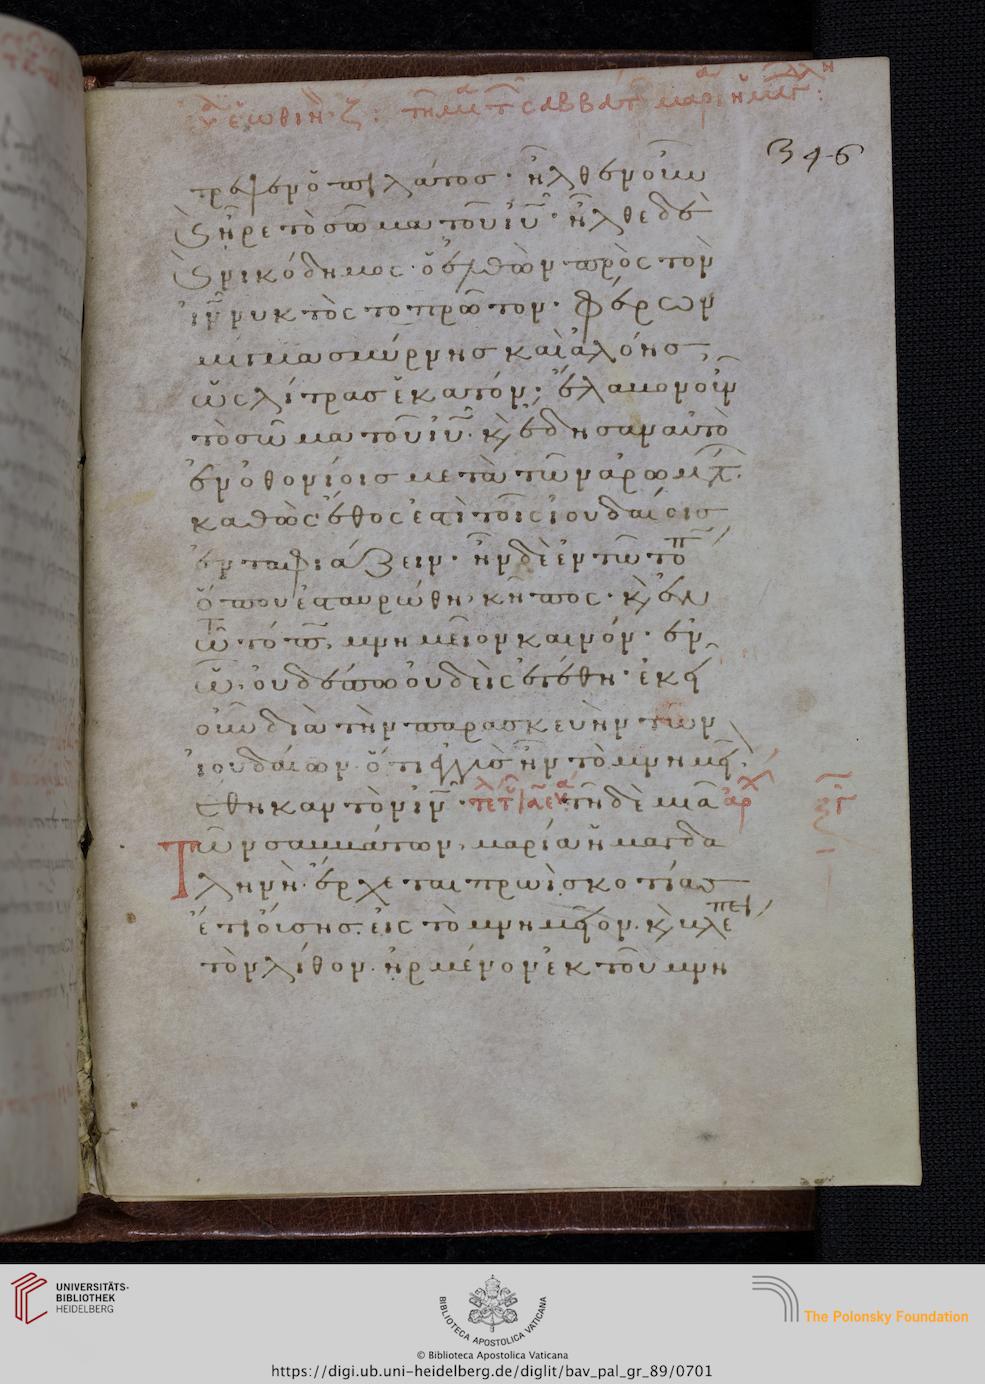 ἑωθιν ζ : τη μια τ σαββατ μαρι η μαγ :
346
τρεψεν ὁ πιλάτος · ἦλθεν οὖν
ϗ ἦρε τὸ σῶμα τοῦ ἰῦ · ἦλθε δὲ
ϗ νικόδημος · ὁ ἐλθὼν πρὸς τὸν
ἰν νυκτὸς το πρῶτον · φέρων
μίγμα σμύρνης καὶ ἀλόης,
ὡς λίτρας ἑκατόν · ἔλαβον οὖν
τὸ σῶμα τοῦ ἰῦ · ϗ ἔδησαν αὐτὸ
ἐν ὀθονίοις μετὰ τῶν ἀρωμτ ·
καθὼς ἔθος ἐστὶ τοῖς ἰουδαίοις
ἐνταφιάζειν · ἦν δὲ ἐν τῶ τόπ
ὅπου ἐσταυρώθη, κῆπος · ϗ ἐν
τῶ κήπω, μνημεῖον καινόν · ἐν
ὧ, οὐδέπω οὐδεὶς ἐτέθη · ἐκεῖ
οὖν διὰ τὴν παρασκευὴν τῶν
ἰουδαίων · ὅτι ἐγγὺς ἦν τὸ μνημεῖ ·
ἔθηκαν τὸν ἰν · τῆ δὲ μιᾶ ἀρχ
Τῶν σαββάτων, μαρία ἡ μαγδα
ληνὴ · ἔρχεται πρωῒ σκοτίας
ἔτι οὔσης · εἰς τὸ μνημεῖον · ϗ βλέπει
τὸν λίθον · ἠρμένον ἐκ τοῦ μνη
UNIVERSITÄTS-
BIBLIOTHEK
HEIDELBERG
BIBLIOTECA APOSTOLICA VATICANA
The Polonsky Foundation
© Biblioteca Apostolica Vaticana
https://digi.ub.uni-heidelberg.de/diglit/bav_pal_gr_89/0701